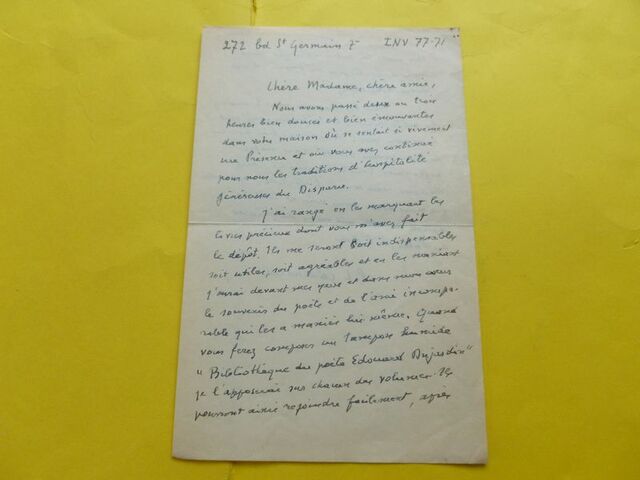 272 bd St Germain 7e
INV 77-71
Chère Madame, chère amie,
Nous avons passé deux ou trois
heures bien douces et bien émouvantes
dans votre maison où se sentait si vivement
une Présence et où vous avez continué
pour nous les traditions d'hospitalité
généreuse du Disparu.
J'ai rangé en les marquant les
livres précieux dont vous m'avez fait
le dépôt. Ils me seront soit indispensables
soit utiles, soit agréables et en les maniant
j'aurai devant mes yeux et dans mon cœur
le souvenir du poète et de l'ami incompa-
rable qui les a maniés lui même. Quand
vous ferez composer un tampon humide
"Bibliothèque du poète Edouard Dujardin"
je l'apposerai sur chacun des volumes. Ils
pourront ainsi rejoindre facilement, après